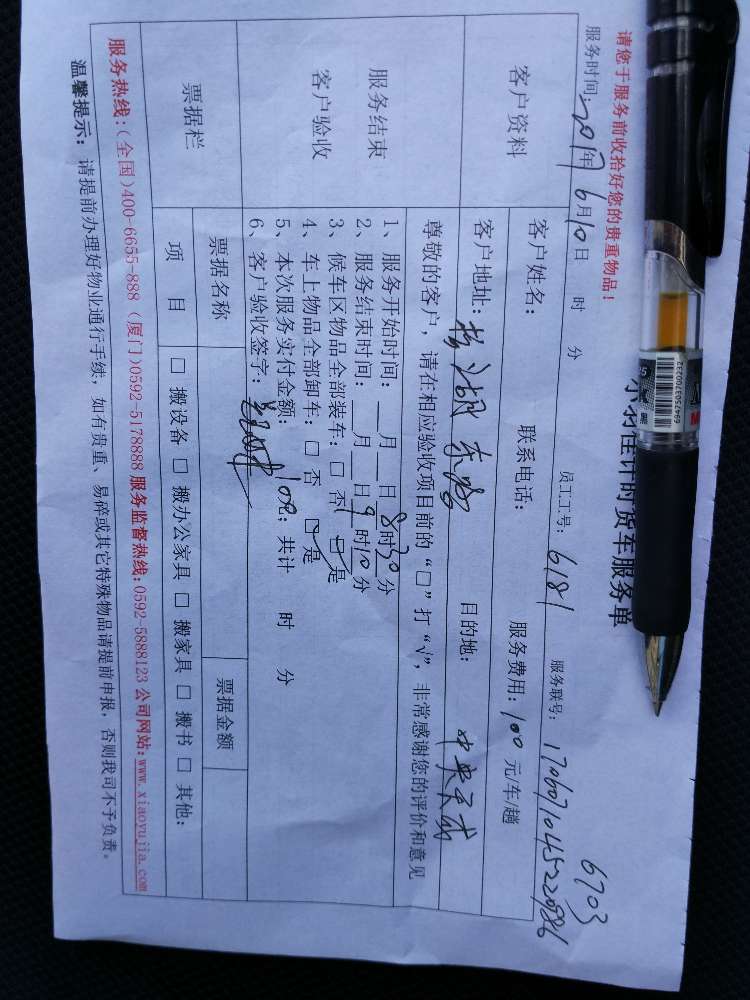 请您于服务前收拾好您的贵重物品！
计时货车服务单
6703
服务时间：2017年 6月10日 时 分 员工工号：6181 服务联号：
客户资料
客户姓名： 联系电话： 服务费用：100 元/车/趟
客户地址： 东路 目的地：中央
服务结束
客户验收
尊敬的客户，请在相应验收项目前的“□”打“√”，非常感谢您的评价和意见
1、服务开始时间：__月__日 8时30分
2、服务结束时间：__月__日 9时10分
3、候车区物品全部装车：□ 否 ☑ 是
4、车上物品全部卸车：□ 否 ☑ 是
5、本次服务实付金额：100元；共计 时 分
6、客户验收签字：
票据栏
票据名称 票据金额
项 目 □ 搬设备 □ 搬办公家具 □ 搬家具 □ 搬书 □ 其他：
服务热线：(全国)400-6655-888 (厦门)0592-5178888 服务监督热线:0592-5888123 公司网站:www.xiaoyujia.com
温馨提示：请提前办理好物业通行手续，如有贵重、易碎或其它特殊物品请提前申报，否则我司不予负责。
6947503700232